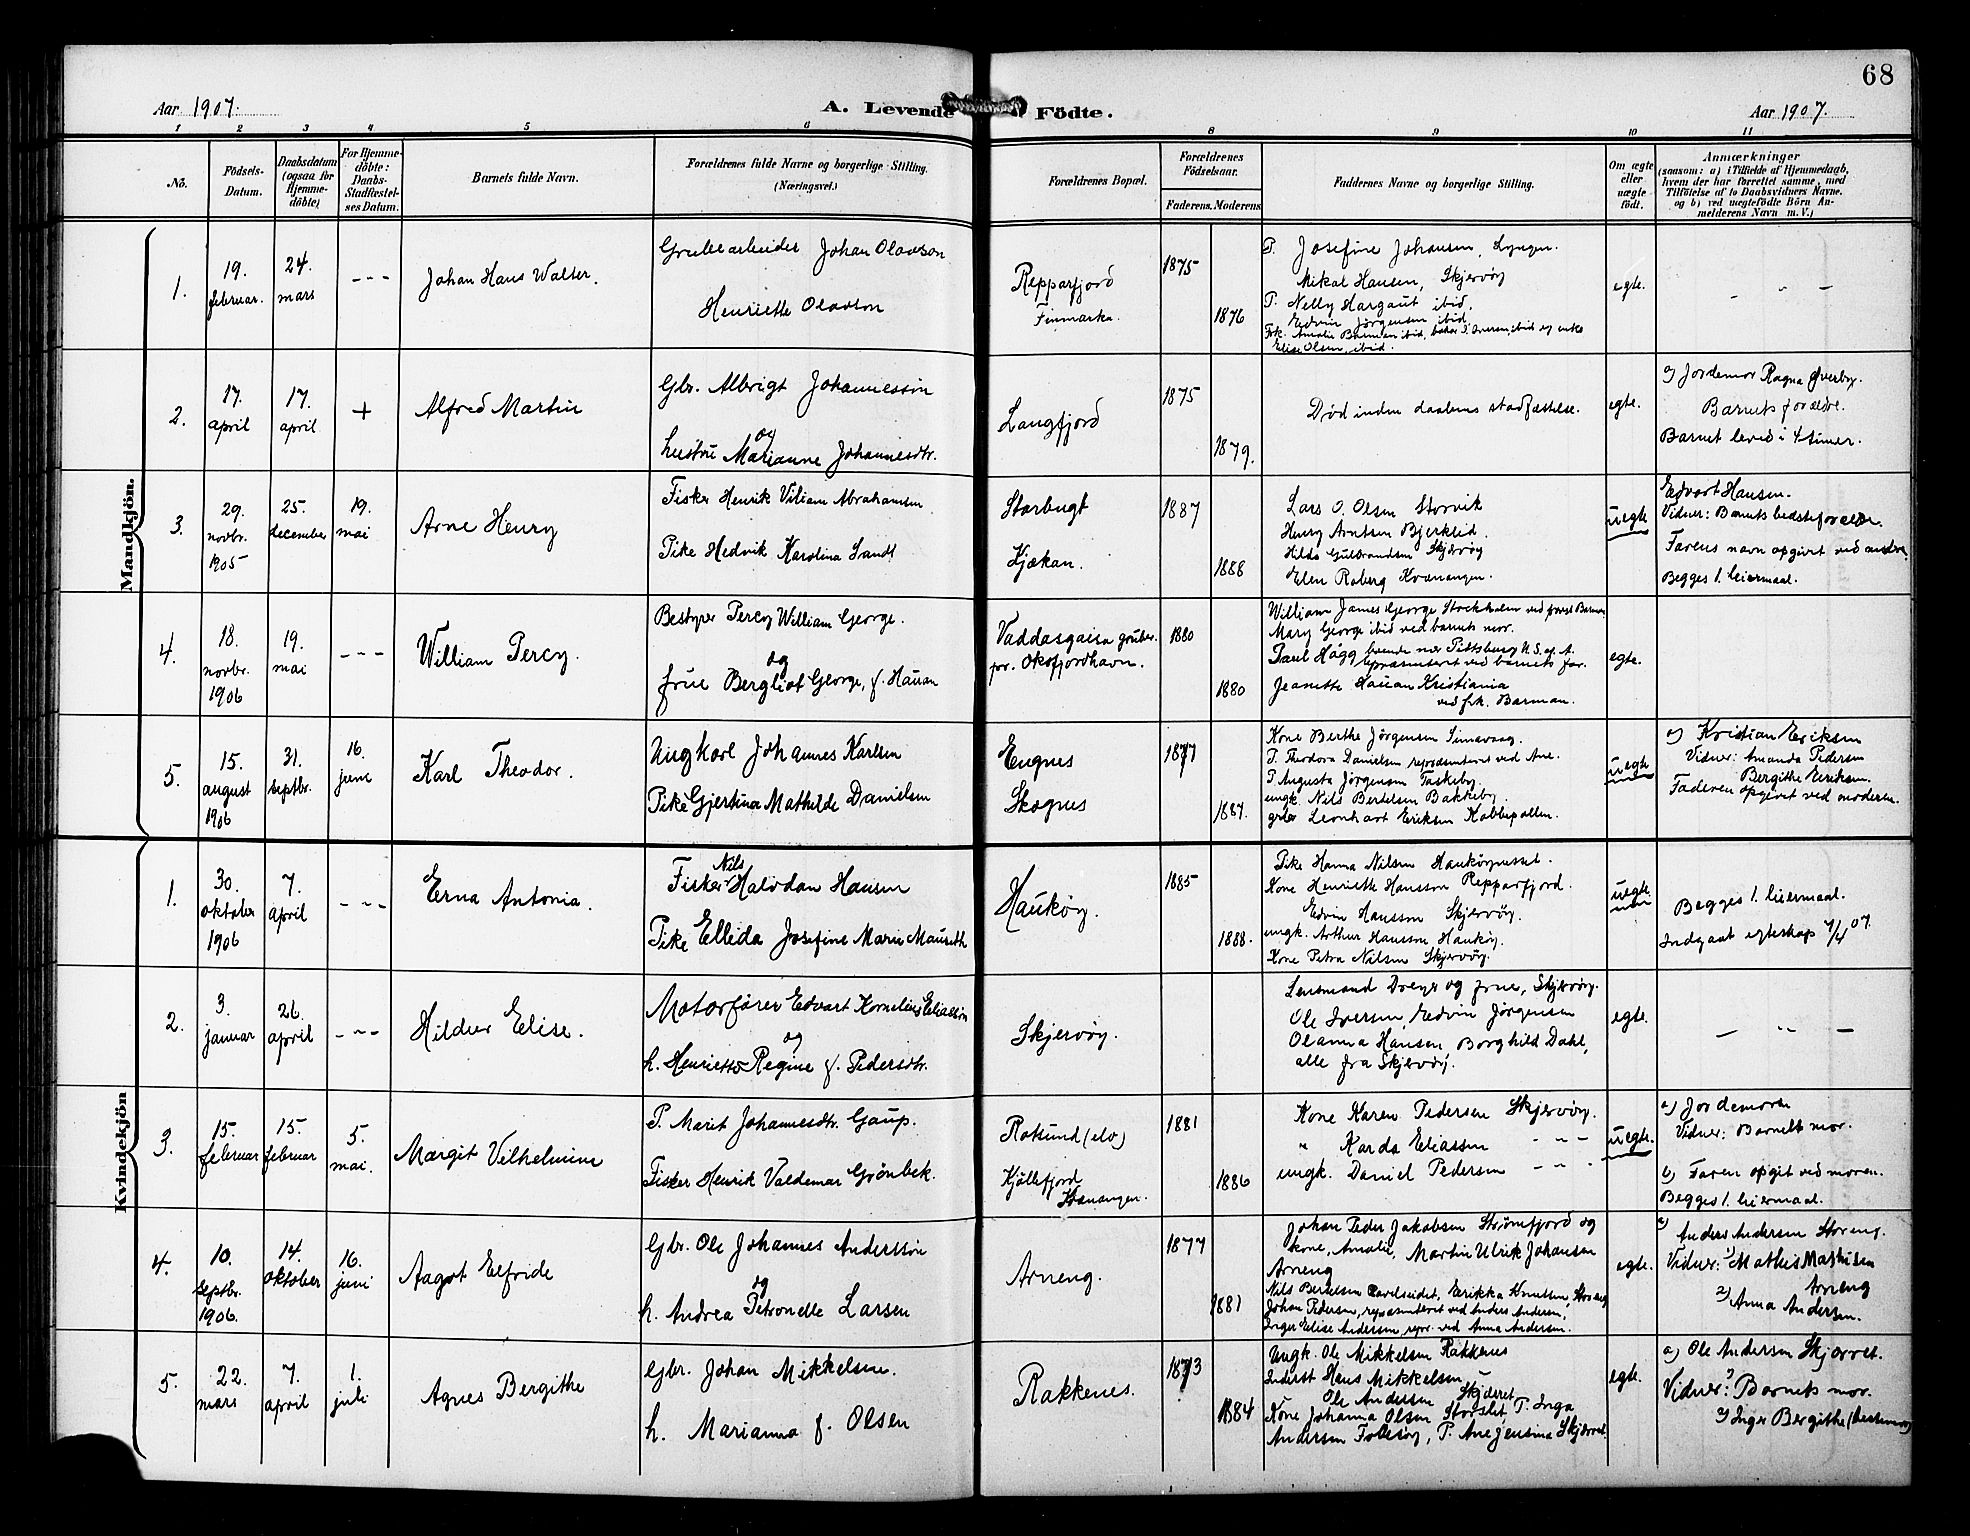 68
Aar 1907.
A. Levende Födte.
Aar 1907.
1 2 3 4 5 6 8 9 10 11
No.
Födsels-Datum.
Daabsdatum (ogsaa for Hjemme-döbte)
For Hjemme-döbte: Daabs-Stadfæstel-ses Datum.
Barnets fulde Navn.
Forældrenes fulde Navne og borgerlige Stilling. (Næringsvei.)
Forældrenes Bopæl.
Forældrenes Födselsaar.
Faderens. Moderens.
Faddernes Navne og borgerlige Stilling.
Om ægte eller uægte födt.
Anmærkninger
(saasom: a) i Tilfælde af Hjemmedaab, hvem der har forrettet samme, med Tilföielse af to Daabsvidners Navne. og b) ved uægtefödte Börn An-melderens Navn m. V.)
Mandkjön.
1.
19. februar.
24. mars
- - -
Johan Hans Walter.
Grubearbeider Johan Olavson
Henriette Olavson
Repparfjord
Finmarken.
1875
1876
P. Josefine Johansen, Lyngen.
Mikal Hansen, Skjervöy
P. Nelly Hargaut ibid.
Edvin Jörgensen ibid.
Elise Olsen, ibid.
egte.
- " -
2.
17. april
17. april
+
Alfred Martin
Gbr. Albrigt Johannessön
og
hustru Marianne Johannesdtr.
Langfjord
1875
1879.
Död inden daabens stadfæstelse.
egte.
a) Jordemor Ragna Øverby.
Barnets forældre.
Barnet leved i 4 timer.
3.
29. novbr. 1905
25. december
19. mai
Arne Henry
Fisker Henrik Viliam Abrahamsen
Pike Hedvik Karolina Sandl
Storbugt
Kjækan.
1887
1888
Lars O. Olsen Storvik
Henry Arntsen Bjerkleid.
Hilda Gulbrandsen Skjervöy
Elen Roberg Kvænangen.
uegte
Edvart Hansen.
Vidner: Barnets bedsteforældre.
Farens navn opgivet ved andre.
Begges 1. leiermaal.
4.
18. novbr. 1906
19. mai
- - -
William Percy.
Bestyrer Percy William George.
og
frue Bergliot George, f. Hauan
Vaddasgaisa gruber
pr. Oksfjordhavn.
1880
1880
William James George Stockholm ved forst. Barman
Mary George ibid ved barnets mor.
Paul Hägg boende nær Pittsburg U.S. of A.
repræsenteret ved barnets far.
Jeanette Hauan Kristiania
ved frk. Barman.
egte.
5.
15. august 1906
31. septbr.
16. juni
Karl Theodor.
Ungkarl Johannes Karlsen
Pike Gjertina Mathilde Danielsen
Engnes
Skognes
1877
1887.
Kone Berthe Jörgensen
P. Theodora Danielsen repræsenteret ved Ane.
P. Augusta Jörgensen Taskeby.
ungk. Nils Bertelsen Bakkeby
gbr. Leonhart Eriksen Kobbepollen.
uegte
a) Kristian Eriksen
Vidner: Amanda Pedersen
Bergithe Eriksen.
Faderen opgivet ved moderen.
Kvindekjön
1.
30. oktober 1906
7. april
- - -
Erna Antonia.
Fisker Nils Halvdan Hansen
Pike Ellida Josefine Marie Maurith
Hauköy.
1885
1888.
Pike Hanna Nilsen Hauköynesset.
Kone Henriette Hansson Repparfjord.
Edvin Hansson Skjervöy.
ungk. Arthur Hansson Hauköy.
Kone Petra Nilsen Skjervöy.
uegte
Begges 1. leiermaal.
Indgaat egteskap 7/4 07.
2.
3. januar
26. april
- - -
Hildur Elise.
Motorfører Edvart Kornelius Eliassen
og
h. Henriette Regine f. Pedersdtr.
Skjervöy.
Lensmand Dreyer og frue, Skjervöy.
Ole Iversen, Edvin Jörgensen
Olanna Hansen, Borghild Dahl,
alle fra Skjervöy.
egte.
- " -
3.
15. februar
15. februar
5. mai.
Margit Vilhelmine
P. Marit Johannesdtr. Gaup.
Fisker Henrik Valdemar Grönbek.
Rotsund (elv)
Kjöllefjord
Kvænangen.
1881
1886
Kone Karen Pedersen Skjervöy.
" Karda Eliassen - - -
ungk. Daniel Pedersen - - -
uegte.
a) Jordemoren
Vidner: Barnets mor.
b) Faren opgit ved moren.
Begges 1. leiermaal.
4.
10. septbr. 1906.
14. oktober
16. juni
Aagot Elfride
Gbr. Ole Johannes Anderssön
og
h. Andrea Petronelle Larsen
Arneng.
1877
1881
Johan Peder Jakobsen Strömfjord og
kone, Amalie, Martin Ulrik Johansen
Arneng
Nils Bertelsen Ravelseidet, Erikka Knutsen, Storeng
Johan Pedersen, repræsenteret ved Anders Andersen,
Inger Elise Andersen, repr. ved Anna Andersen.
egte.
a) Anders Andersen Storeng.
Vidner: 1) Mathis Mathisen
Arneng
2) Anna Andersen.
5.
22. mars
7. april
1. juli
Agnes Bergithe
Gbr. Johan Mikkelsen.
h. Marianna f. Olsen
Rakkenes.
1873
1884
Ungk. Ole Mikkelsen Rakkenes
Inderst Hans Mikkelsen -
Ole Andersen Skjæret
Kone Johanna Olsen Storslet, P. Inga
Andersen Follesöy, P. Ane Jensina Skjæret.
egte.
a) Ole Andersen Skjærret.
Vidner: 1) Barnets mor.
2) Inger Bergithe (bestemor)